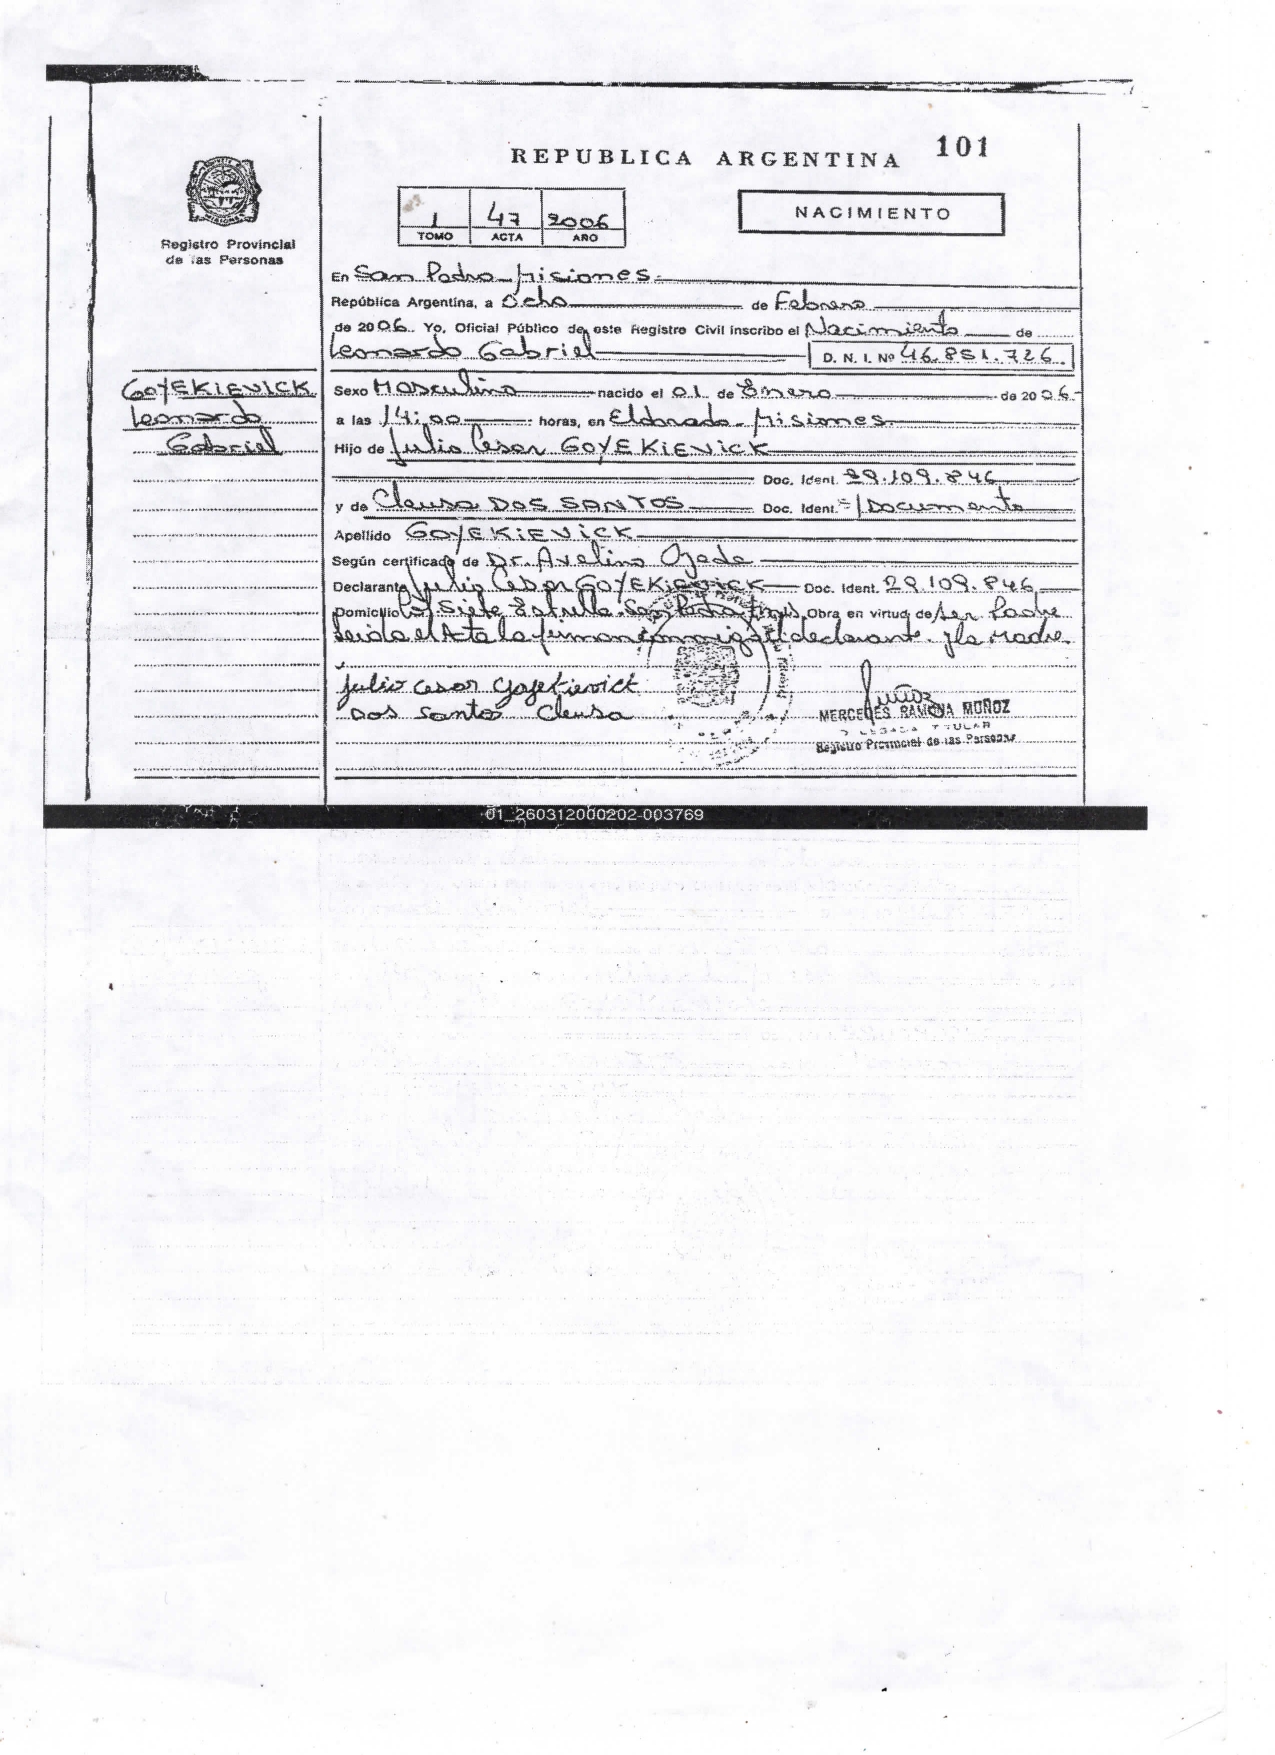 REPUBLICA ARGENTINA 101
Registro Provincial
de las Personas
1 47 2006
TOMO ACTA AÑO
NACIMIENTO
En San Pedro - Misiones.
República Argentina, a Ocho de Febrero
de 2006. Yo, Oficial Público de este Registro Civil inscribo el Nacimiento de
Leonardo Gabriel D. N. I. Nº 46.851.726.
GOYEKIEVICK
Leonardo
Gabriel
Sexo Masculino nacido el 01 de Enero de 2006.
a las 14:00 horas, en Eldorado - Misiones
Hijo de Julio Cesar GOYEKIEVICK
Doc. Ident. 29.109.846
y de Cleusa DOS SANTOS Doc. Ident. =/Documento
Apellido GOYEKIEVICK
Según certificado de Dr. Avelino Ojeda
Declarante Julio Cesar GOYEKIEVICK Doc. Ident. 29.109.846
Domicilio Siete Estrella - San Pedro Obra en virtud de ser Padre
Leida el Acta la firman conmigo el declarante y la Madre
Julio Cesar Goyekievick
Dos Santos Cleusa
MERCEDES RAMONA MUÑOZ
DELEGADA TITULAR
Registro Provincial de las Personas
01_260312000202-003769